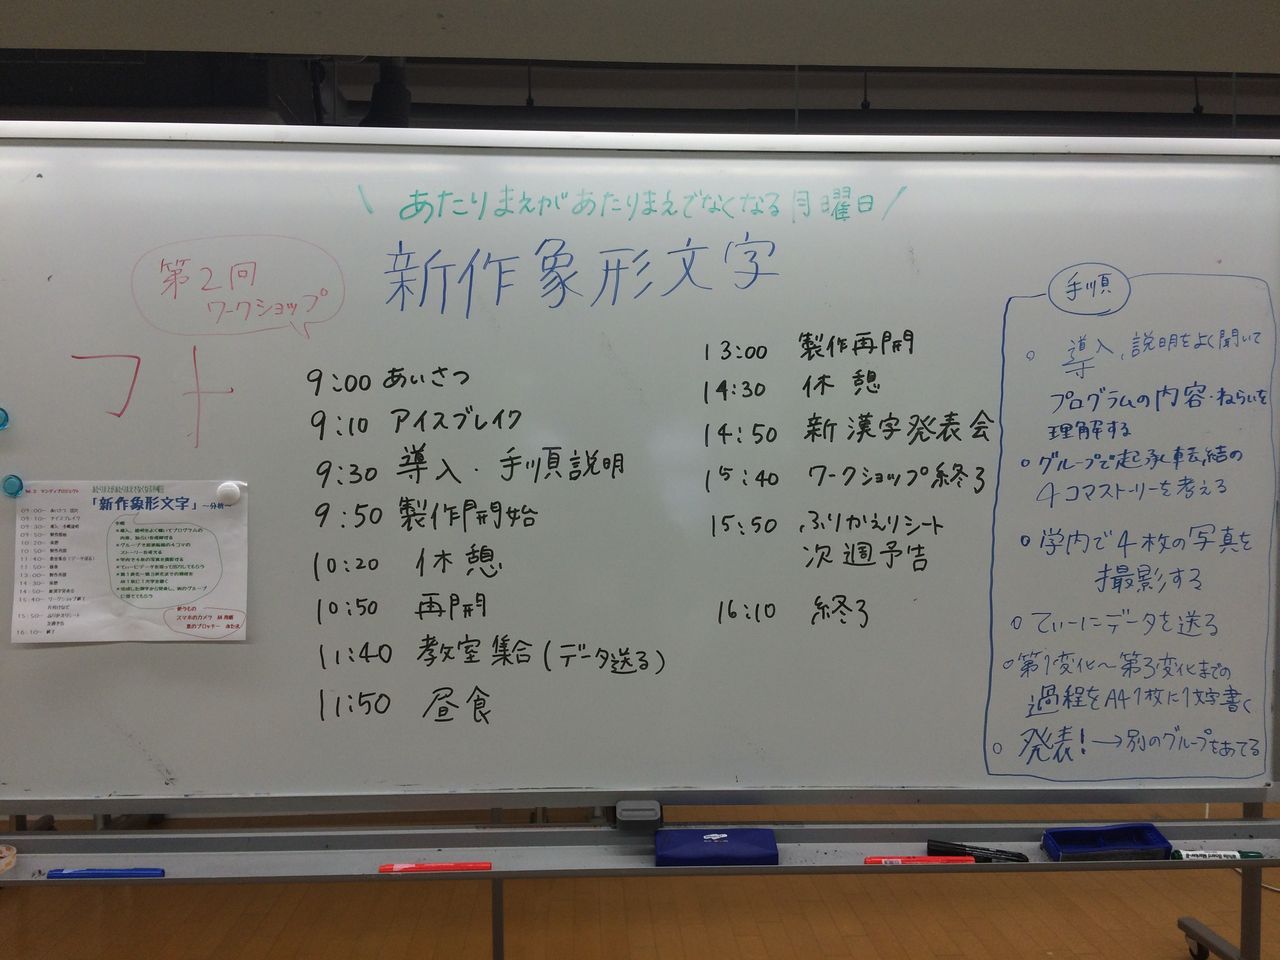 \ あたりまえがあたりまえでなくなる月曜日 /
新作象形文字
第2回
ワークショップ
9:00 あいさつ
9:10 アイスブレイク
9:30 導入・手順説明
9:50 製作開始
10:20 休憩
10:50 再開
11:40 教室集合(データ送る)
11:50 昼食
13:00 製作再開
14:30 休憩
14:50 新漢字発表会
15:40 ワークショップ終了
15:50 ふりかえりシート
次週予告
16:10 終了
手順
○ 導入、説明をよく聞いて
プログラムの内容・ねらいを
理解する
○ グループで起承転結の
4コマストーリーを考える
○ 学内で4枚の写真を
撮影する
○ てぃーにデータを送る
○ 第1変化〜第3変化までの
過程をA4 1枚に1文字書く
○ 発表!→別のグループをあてる
「新作象形文字」〜分析〜